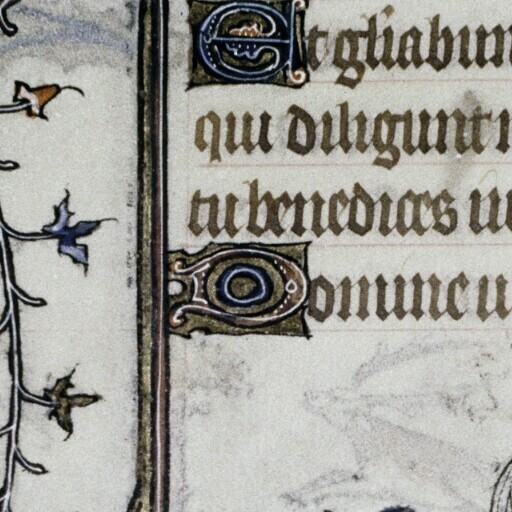 Et gl̃iabun
qui diligunt n
tu benedices iu
Domine u